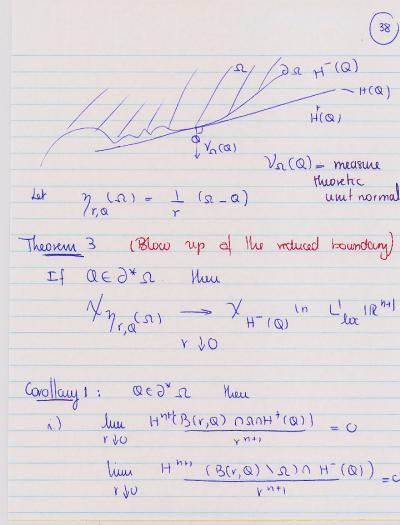 38
Ω ∂Ω H⁻(Q)
H(Q)
H⁺(Q)
Q
ν_Ω(Q)
ν_Ω(Q) = measure
theoretic
unit normal
Let η_{r,Q}(Ω) = 1/r (Ω - Q)
Theorem 3 (Blow up of the reduced boundary)
If Q ∈ ∂*Ω then
χ_{η_{r,Q}(Ω)} → χ_{H⁻(Q)} in L¹_{loc}(ℝⁿ⁺¹)
r↓0
Corollary 1: Q ∈ ∂*Ω then
1) lim_{r↓0} Hⁿ⁺¹(B(r,Q) ∩ Ω ∩ H⁺(Q)) / rⁿ⁺¹ = 0
lim_{r↓0} Hⁿ⁺¹ (B(r,Q) \ Ω) ∩ H⁻(Q)) / rⁿ⁺¹ = 0